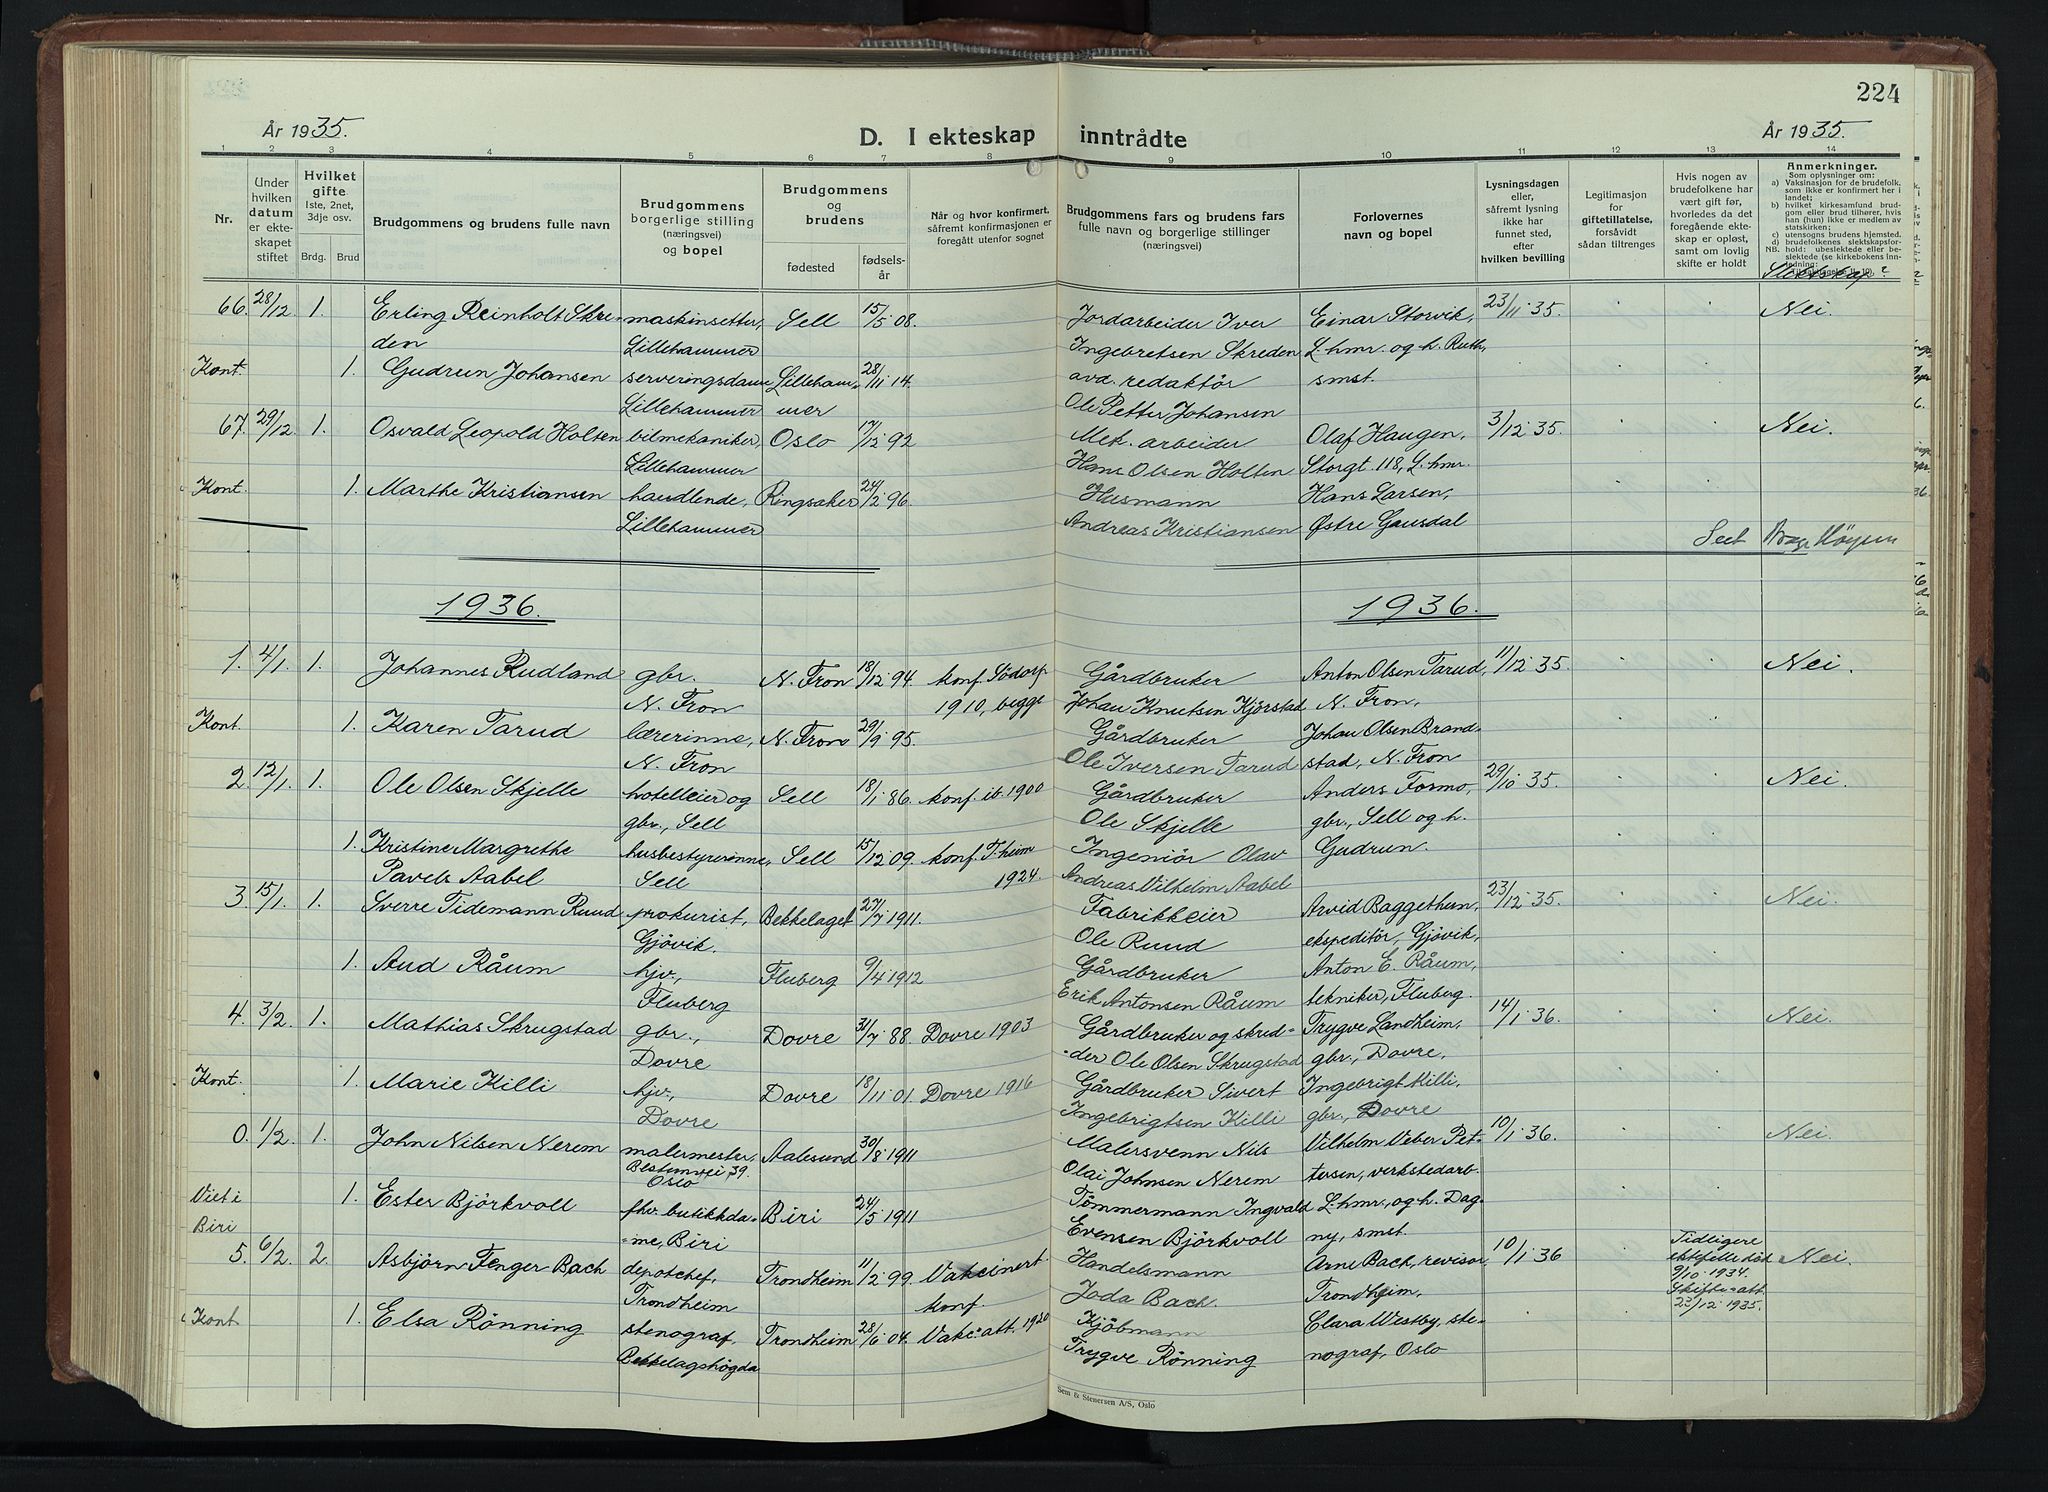 224
År 1935.
D. I ekteskap inntrådte
År 1935.
1 2 3 4 5 6 7 8 9 10 11 12 13 14
Nr.
Under hvilken datum er ekteskapet stiftet
Hvilket gifte 1ste, 2net, 3dje osv.
Brdg. Brud
Brudgommens og brudens fulle navn
Brudgommens borgerlige stilling (næringsvei) og bopel
Brudgommens og brudens
fødested
fødselsår
Når og hvor konfirmert, såfremt konfirmasjonen er foregått utenfor sognet
Brudgommens fars og brudens fars fulle navn og borgerlige stillinger (næringsvei)
Forlovernes navn og bopel
Lysningsdagen eller, såfremt lysning ikke har funnet sted, efter hvilken bevilling
Legitimasjon for giftetillatelse, forsåvidt sådan tiltrenges
Hvis nogen av brudefolkene har vært gift før, hvorledes da det foregående ekteskap er opløst, samt om lovlig skifte er holdt
Anmerkninger.
Som oplysninger om:
a) Vaksinasjon for de brudefolk, som ikke er konfirmert her i landet;
b) hvilket kirkesamfund brudgom eller brud tilhører, hvis han (hun) ikke er medlem av statskirken;
c) utensogns brudens hjemsted.
d) brudefolkenes slektskapsforhold: ubeslektede eller beslektede (se kirkebokens inn-
NB.
Slektskap?
66. 28/12. 1. Erling Reinholt Skre- maskinsetter, Sell 15/5 08. Jordarbeider Iver Einar Storvik, 23/11 35. Nei.
den Lillehammer Ingebretsen Skreden L.hmr. og h. Ruth,
Kont. 1. Gudrun Johansen serveringsdame Lilleham- 28/11 14. avd. redaktör smst.
Lillehammer mer Ole Petter Johansen
67. 29/12. 1. Osvald Leopold Holten bilmekaniker, Oslo 17/12 92 Mek. arbeider Olaf Haugen, 3/12 35. Nei.
Lillehammer Hans Olsen Holten Storgt. 118, L.hmr.
Kont. 1. Marthe Kristiansen handlende, Ringsaker 24/2 96. Husmann og Hans Larsen,
Lillehammer Andreas Kristiansen Østre Gausdal
Sett
1936. 1936.
1. 4/1. 1. Johannes Rudland gbr. N. Fron 18/12 94. konf. Södorp Gårdbruker Anton Olsen Tarud, 11/12 35. Nei.
N. Fron 1910, begge Johan Knutsen Kjörstad N. Fron,
Kont. 1. Karen Tarud lærerinne, N. Fron 29/9 95. Gårdbruker Johan Olsen Brand-
N. Fron Ole Iversen Tarud stad, N. Fron
2. 12/1. 1. Ole Olsen Skjelle hotelleier og Sell 18/1 86. konf. ib. 1900 Gårdbruker Anders Formo, 29/10 35. Nei.
gbr., Sell Ole Skjelle gbr., Sell og h.
1. Kristine Margrethe husbestyrerinne, Sell 15/12 09. konf. T.heim Ingeniör Olav Gudrun.
Pavels Aabel Sell 1924. Andreas Vilhelm Aabel
3. 15/1. 1. Sverre Tidemann Ruud prokurist, Bekkelaget 27/7 1911. Fabrikkeier Arvid Baggethun, 23/12 35. Nei.
Gjövik. Ole Ruud ekspeditör, Gjövik,
1. Aud Råum hjv., Fluberg 9/4 1912 Gårdbruker Anton E. Råum,
Fluberg Erik Antonsen Råum tekniker, Fluberg.
4. 3/2. 1. Mathias Skrugstad gbr., Dovre 31/7 88. Dovre 1903 Gårdbruker og skred- Trygve Landheim, 14/1 36. Nei.
Dovre der Ole Olsen Skrugstad gbr., Dovre.
Kont. 1. Marie Killi hjv., Dovre 18/11 01. Dovre 1916 Gårdbruker Sivert Ingebrigt Killi,
Dovre Ingebrigtsen Killi gbr., Dovre
0. 1/2. 1. John Nilsen Nerem malermester, Aalesund 30/8 1911 Malersvenn Nils Vilhelm Veber Pet- 10/1 36. Nei.
Bestumvei 39. Oslo Olai Johnsen Nerem tersen, verkstedarb.
Viet i 1. Ester Björkvoll fhv. butikkda- Biri 24/5 1911 Tömmermann Ingvald L.hmr., og h. Dag-
Biri me, Biri Evensen Björkvoll ny, smst.
5. 6/2. 2. Asbjörn Fenger Bach depotchef, Trondheim 11/2 99. Vaksinert Handelsmann Arne Bach, revisor, 10/1 36 Tidligere ektefelle död 9/10 1934. Skifteatt. 23/12 1935. Nei.
Trondheim konf. Joda Bach. Trondheim.
Kont 1. Elsa Rönning stenograf, Trondheim 28/6 04. Vaks. att. 1920 Kjöbmann Clara Westby, ste-
Bekkelagshögda Trygve Rönning nograf, Oslo
Sem & Stenersen A/S, Oslo